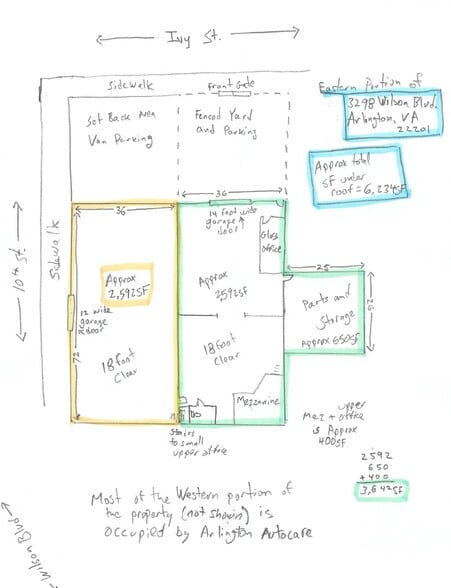 Ivy St.
Sidewalk
Front Gate
Eastern Portion of
3298 Wilson Blvd.
Arlington, VA
22201
Set Back Area
Van Parking
Fenced Yard
and Parking
Approx total
SF under
roof = 6,234SF
36
36
14 foot wide
garage
door
Glass
office
10th St.
Sidewalk
Approx
2,592SF
Approx
2592SF
25
26
Parts and
Storage
Approx 650SF
12 wide
garage
door
72
18 foot
Clear
18 foot
Clear
Mezzanine
Stairs
to small
upper office
upper
Mez + office
is Approx
400SF
2592
650
+ 400
3,642SF
Most of the Western portion of
the property (not shown) is
occupied by Arlington Autocare
Wilson Blvd